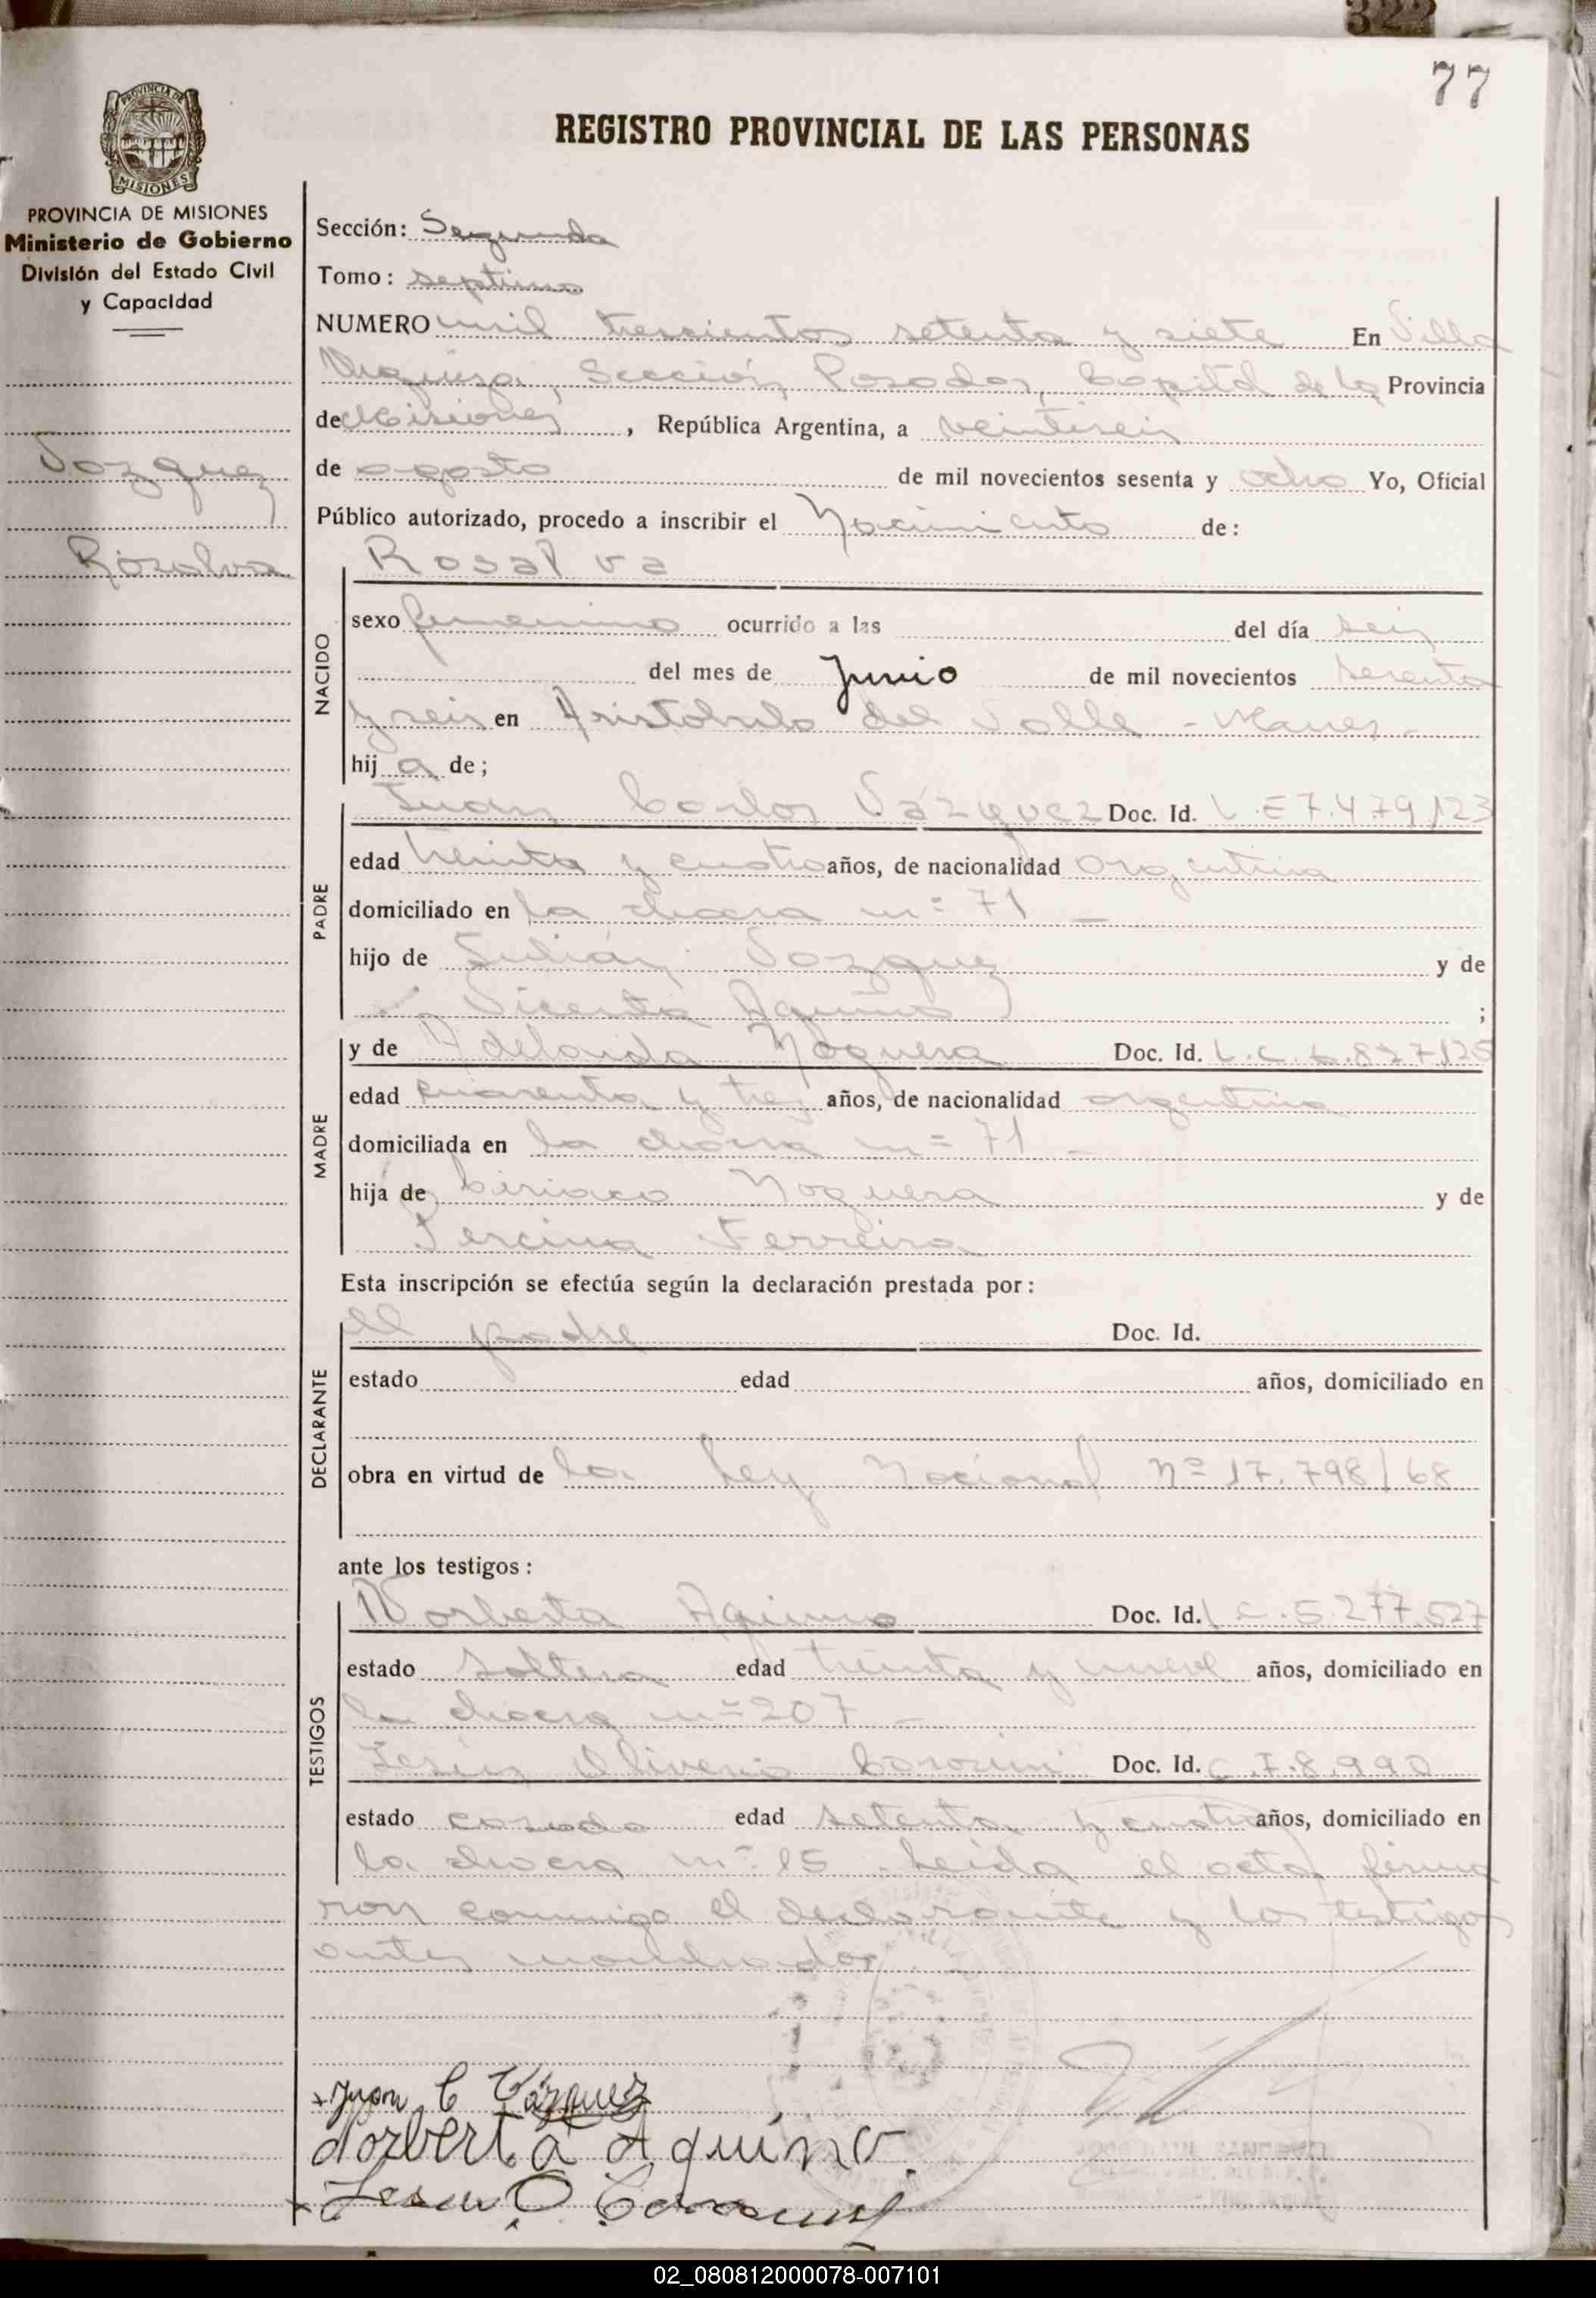 322
77
PROVINCIA DE MISIONES
REGISTRO PROVINCIAL DE LAS PERSONAS
PROVINCIA DE MISIONES
Ministerio de Gobierno
División del Estado Civil
y Capacidad
Vazquez
Rosalva
Sección: Segunda
Tomo: septimo
NUMERO mil trescientos setenta y siete En Villa
Urquiza, Sección Posadas, Capital de la Provincia
de Misiones, República Argentina, a veintiseis
de agosto de mil novecientos sesenta y ocho Yo, Oficial
Público autorizado, procedo a inscribir el Nacimiento de:
NACIDO
Rosalva
sexo femenino ocurrido a las del día seis
del mes de Junio de mil novecientos sesenta
y seis en Aristobulo del Valle -
hija de;
PADRE
Juan Carlos Vázquez Doc. Id. L.E 7.479.123
edad treinta y cuatro años, de nacionalidad argentina
domiciliado en la chacra nº 71 -
hijo de Julián Vazquez y de
Vicenta Aquino ;
MADRE
y de Adelaida Noguera Doc. Id. L.C. 6.827.125
edad cuarenta y tres años, de nacionalidad argentina
domiciliada en la chacra nº 71 -
hija de Ciriaco Noguera y de
Percina Ferreira
Esta inscripción se efectúa según la declaración prestada por:
DECLARANTE
El padre Doc. Id.
estado edad años, domiciliado en
obra en virtud de la Ley Nacional Nº 17.798/68
ante los testigos:
TESTIGOS
Norberta Aquino Doc. Id. L.C. 5.277.527
estado Soltera edad treinta y nueve años, domiciliado en
la chacra nº 207 -
Jesús Oliverio Doc. Id. C.I. 8.990
estado casado edad setenta y cuatro años, domiciliado en
la chacra nº 15. Leida el acta, firma
ron conmigo el declarante y los testigos
antes nombrados
Juan C Vázquez
Norberta Aquino
Jesus O.
02_080812000078-007101